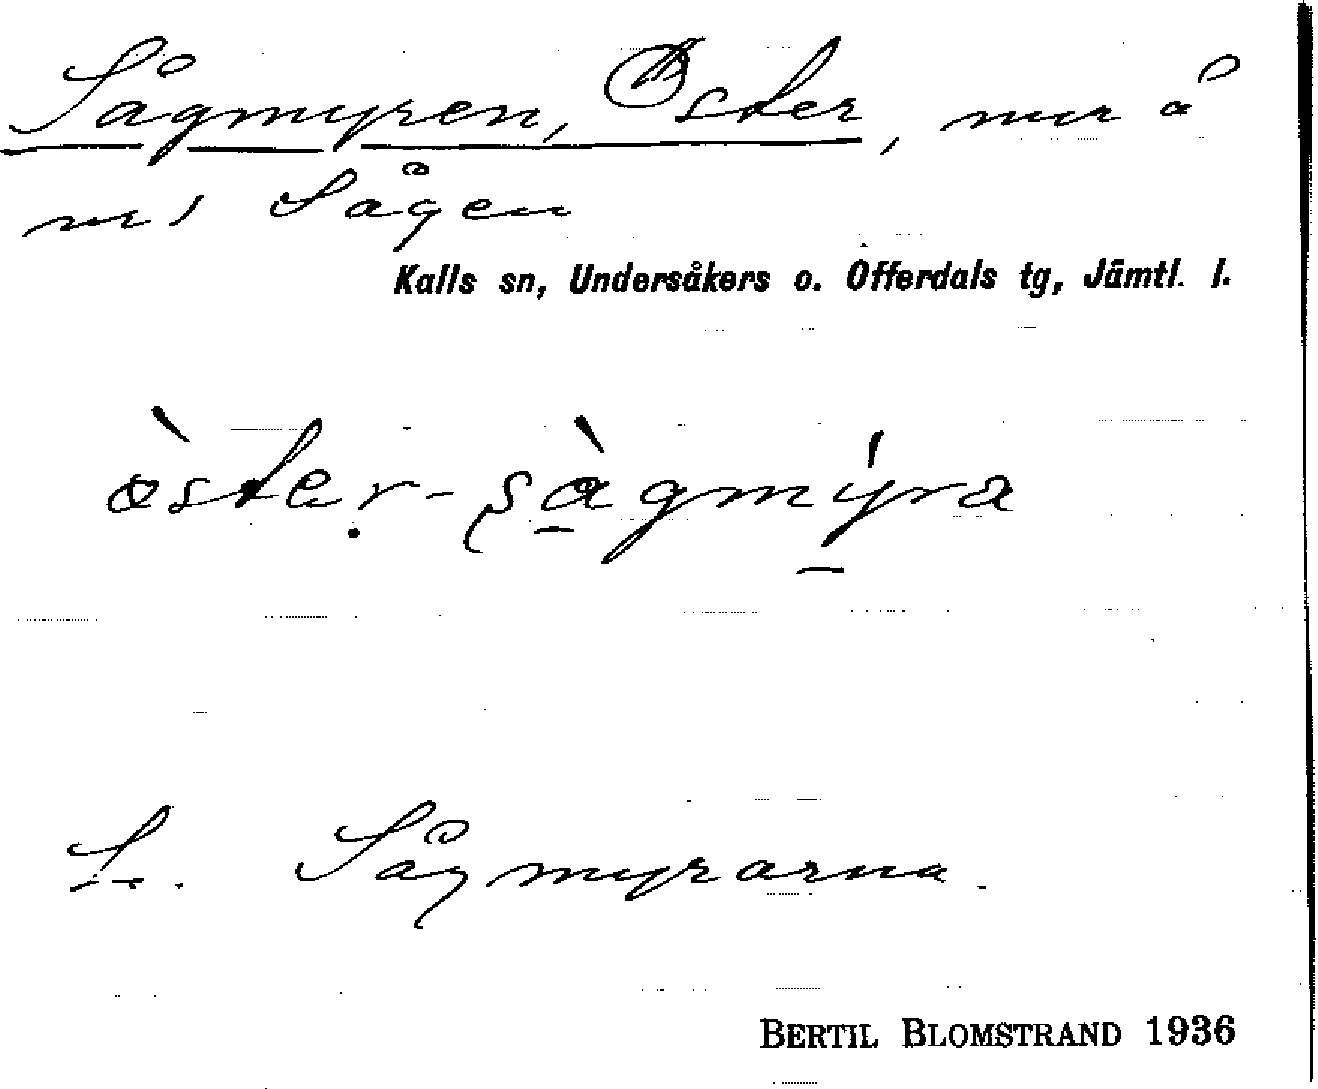 Sågmyren, Öster, myr å
nr 1 Sågen
Kalls sn, Undersåkers o. Offerdals tg, Jämtl. l.
òster-sàgmýra
Se. Sågmyrarna.
BERTIL BLOMSTRAND 1936